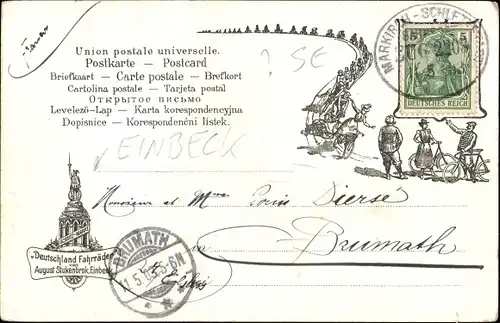 Union postale universelle.
Postkarte — Postcard
Briefkaart — Carte postale — Brefkort
Cartolina postale — Tarjeta postal
Открытое письмо
Levelező-Lap — Karta korespondencyjna
Dopisnice — Korespondenční lístek.
? SE
EINBECK
MARKIRCH - SCHLETTSTADT
5 5
DEUTSCHES REICH
Monsieur et Mme
Diersé
Brumath
in
BRUMATH
11.5.
5-6N
„Deutschland Fahrräder"
August Stukenbrok, Einbeck